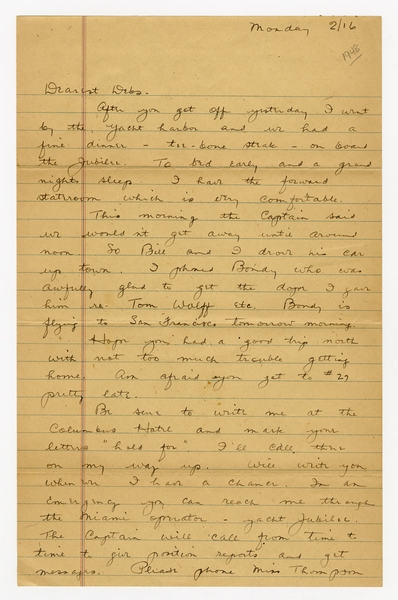 Monday 2/16
1948
Dearest Debs.
After you got off yesterday I went
by the yacht harbor and we had a
fine dinner - tee-bone steak - on board
the Jubilee. To bed early and a grand
nights sleep. I have the forward
stateroom which is very comfortable.
This morning the Captain said
we wouldn't get away until around
noon So Bill and I drove his car
up town. I phoned Bondy who was
awfully glad to get the dope I gave
him re- Tom Wolff etc. Bondy is
flying to San Francisco tomorrow morning.
Hope you had a good trip north
with not too much trouble getting
home. Am afraid you got to #29
pretty late.
Be sure to write me at the
Columbus Hotel and mark your
letters "hold for". I'll call there
on my way up. Will write you
whenever I have a chance. In an
Emergency you can reach me through
the Miami operator - yacht Jubilee.
The Captain will call from time to
time to give position reports and get
messages. Please phone Miss Thompson